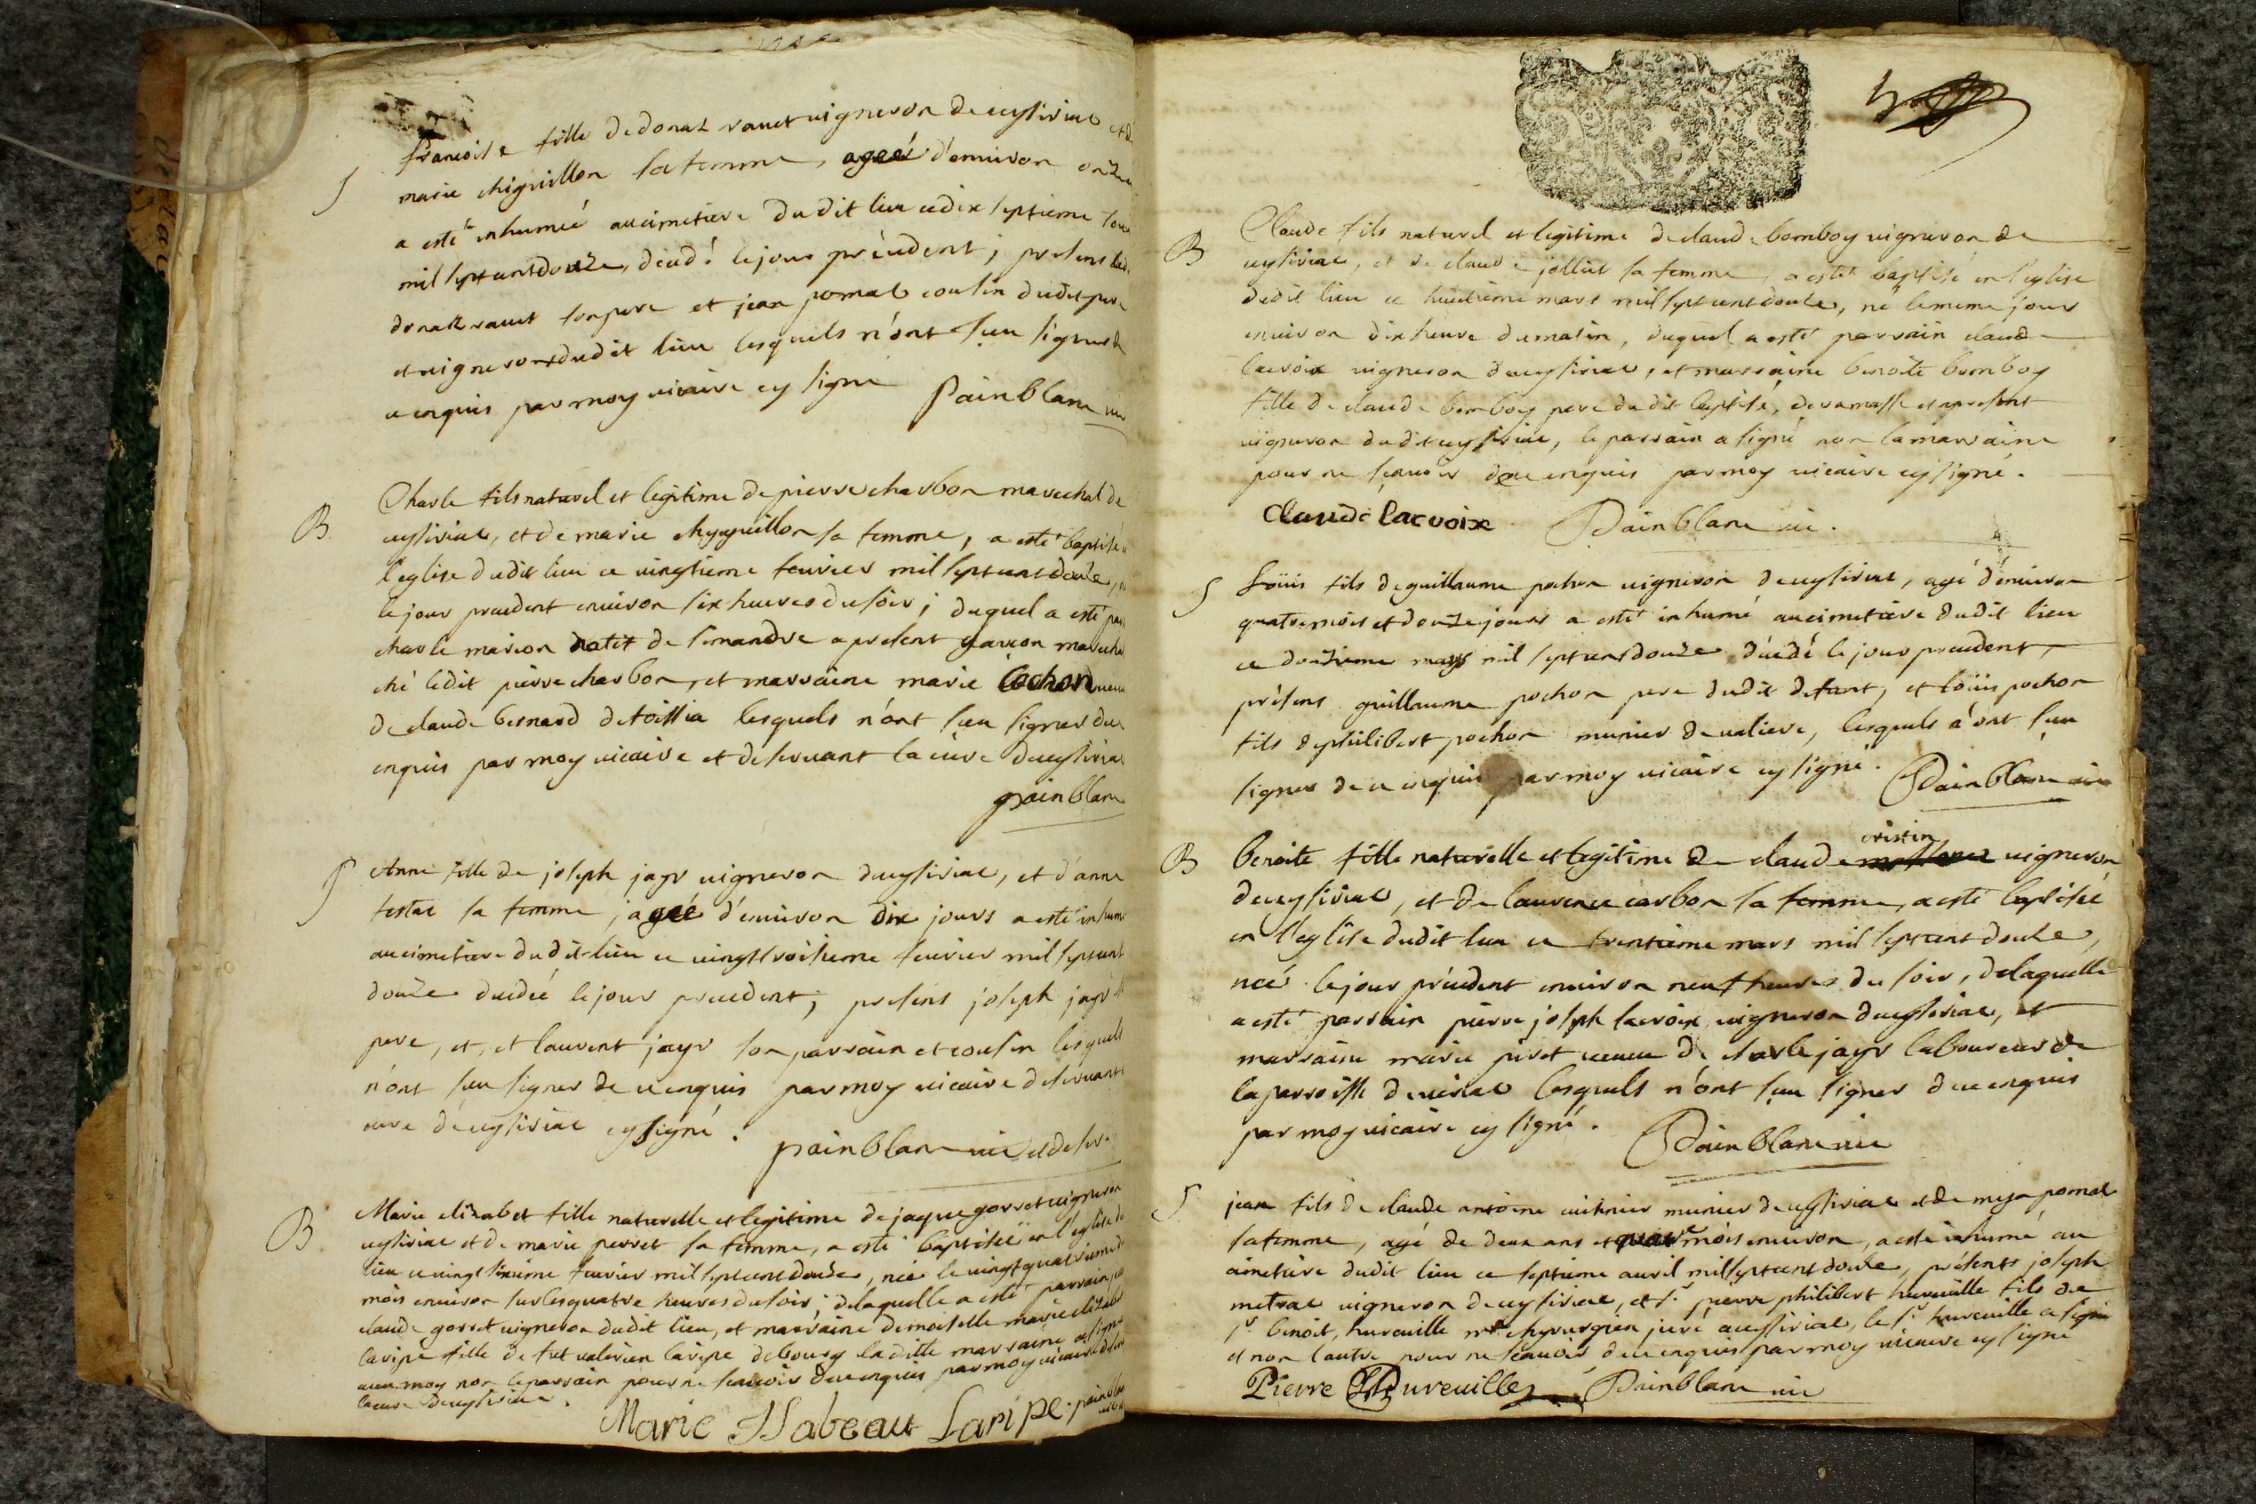 françoise fille de donat ravet vigneron de ceysiriat et de
S
marie chiguillon sa femme, ageé d'environ onze
a esté inhumeé au cimetiere dudit lieu ce dix septieme
mil sept cent douze, decedé le jour précedent; presens
donat ravet son pere et jean pomat cousin dudit pere
et vignerons dudit lieu lesquels n'ont sçeu signer de
ce enquis par moy vicaire cy signé Painblanc vic
B.
Charle fils naturel et legitime de pierre charbon marechal de
ceysiriat, et de marie chyguillon sa femme, a esté baptisé
l'eglise dudit lieu ce vingtieme fevrier mil sept cent douze,
le jour precedent environ six heures du soir; duquel a esté
charle marion natif de simandre a present garçon
ché ledit pierre charbon, et marraine marie Cochon
de claude besnard de toissia lesquels n'ont sceu signer de
enquis par moy vicaire et deservant la cure de ceysiria
painblanc
S
Anne fille de joseph jayr vigneron de ceysiriat, et d'anne
festas sa femme, ageé d'environ dix jours a esté inhumé
au cimetiere dudit lieu ce vingt troisieme fevrier mil sept cent
douze decedeé le jour precedent, presens joseph jayr
pere, et, et laurent jayr son parrain et cousin lesquels
n'ont sceu signer de ce enquis par moy vicaire deservant
cure de ceysiriat cy signé. painblanc vic et deser.
B.
Marie elizabet fille naturelle et legitime de jaque gorret vigneron
ceysiriat et de marie perret sa femme, a esté baptiseé en l'eglise
lieu ce vingt sixieme fevrier mil sept cent douze, née le vingt quatrieme
mois environ sur les quatre heures du soir; de laquelle a esté parrain
claude gorret vigneron dudit lieu, et marraine demoiselle marie elizabet
laripe fille de valerien laripe de bourg ladite marraine a signé
avec moy non le parrain pour ne scavoir de ce enquis par moy vicaire
la cure de ceysiriat.
Marie Isabeau Laripe. painblanc
B
Claude fils naturel et legitime de claude bomboy vigneron de
ceysiriat, et de claude jolliet sa femme a esté baptisé en l'eglise
dudit lieu ce huitieme mars mil sept cent douze, né le meme jour
environ dix heure du matin, duquel a esté parrain claude
lacroix vigneron de ceysiriat, et marraine benoite bomboy
fille de claude bomboy pere dudit baptisé, de ramasse et a present
vigneron dudit ceysiriat, le parrain a signé non la marraine
pour ne scavoir de ce enquis par moy vicaire cy signé.
Claude lacroix Painblanc vic.
S
Loüis fils de guillaume pochon vigneron de ceysiriat, agé d'environ
quatre mois et douze jours a esté inhumé au cimetiere dudit lieu
ce douzieme mars mil sept cens douze décédé le jour precedent,
présens guillaume pochon pere dudit defunt, et loüis pochon
fils de philibert pochon munier de valiere, lesquels n'ont sceu
signer de ce enquis par moy vicaire cy signé. Painblanc vic
B
cristin
benoite fille naturelle et legitime de claude vigneron
de ceysiriat, et de laurence carbon sa femme, a esté baptiseé
en l'eglise dudit lieu ce trentieme mars mil sept cent douze,
neé le jour précedent environ neuf heures du soir, de laquelle
a esté parrain pierre joseph lacroix vigneron de ceysiriat, et
marraine marie piret veuve de charle jayr laboureur de
la parroisse de lesquels n'ont sceu signer de ce enquis
par moy vicaire cy signé. Painblanc vic
S.
jean fils de claude antoine munier de ceysiriat et de pomat
sa femme, agé de deux ans et quatre mois environ, a esté inhumé au
cimetiere dudit lieu ce septieme avril mil sept cent douze, présents joseph
vigneron de ceysiriat, et sr pierre philibert hureuille fils de
sr benoit, hureuille mre chyrurgien juré a ceysiriat, le sr hureuille a signé
et non l'autre pour ne scavoir de ce enquis par moy vicaire cy signé
Pierre Hureuille Painblanc vic